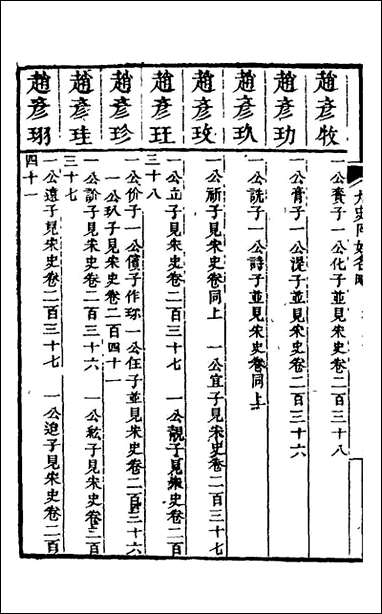 趙彥牧
一公賚子一公化子並見宋史卷二百三十八
趙彥功
一公膏子一公湜子並見宋史卷二百三十六
趙彥玖
一公詵子一公詩子並見宋史卷同上
趙彥玫
一公祈子見宋史卷同上　一公宜子見宋史卷二百三十七
趙彥玨
一公立子見宋史卷二百三十七　一公靚子見宋史卷二百
三十八
趙彥珍
一公价子一公僎子作珎一公任子並見宋史卷二百三十六
一公玖子見宋史卷二百四十一
趙彥珪
一公詥子見宋史卷二百三十六　一公紘子見宋史卷二百
三十七
趙彥珝
一公遠子見宋史卷二百三十七　一公追子見宋史卷二百
四十一